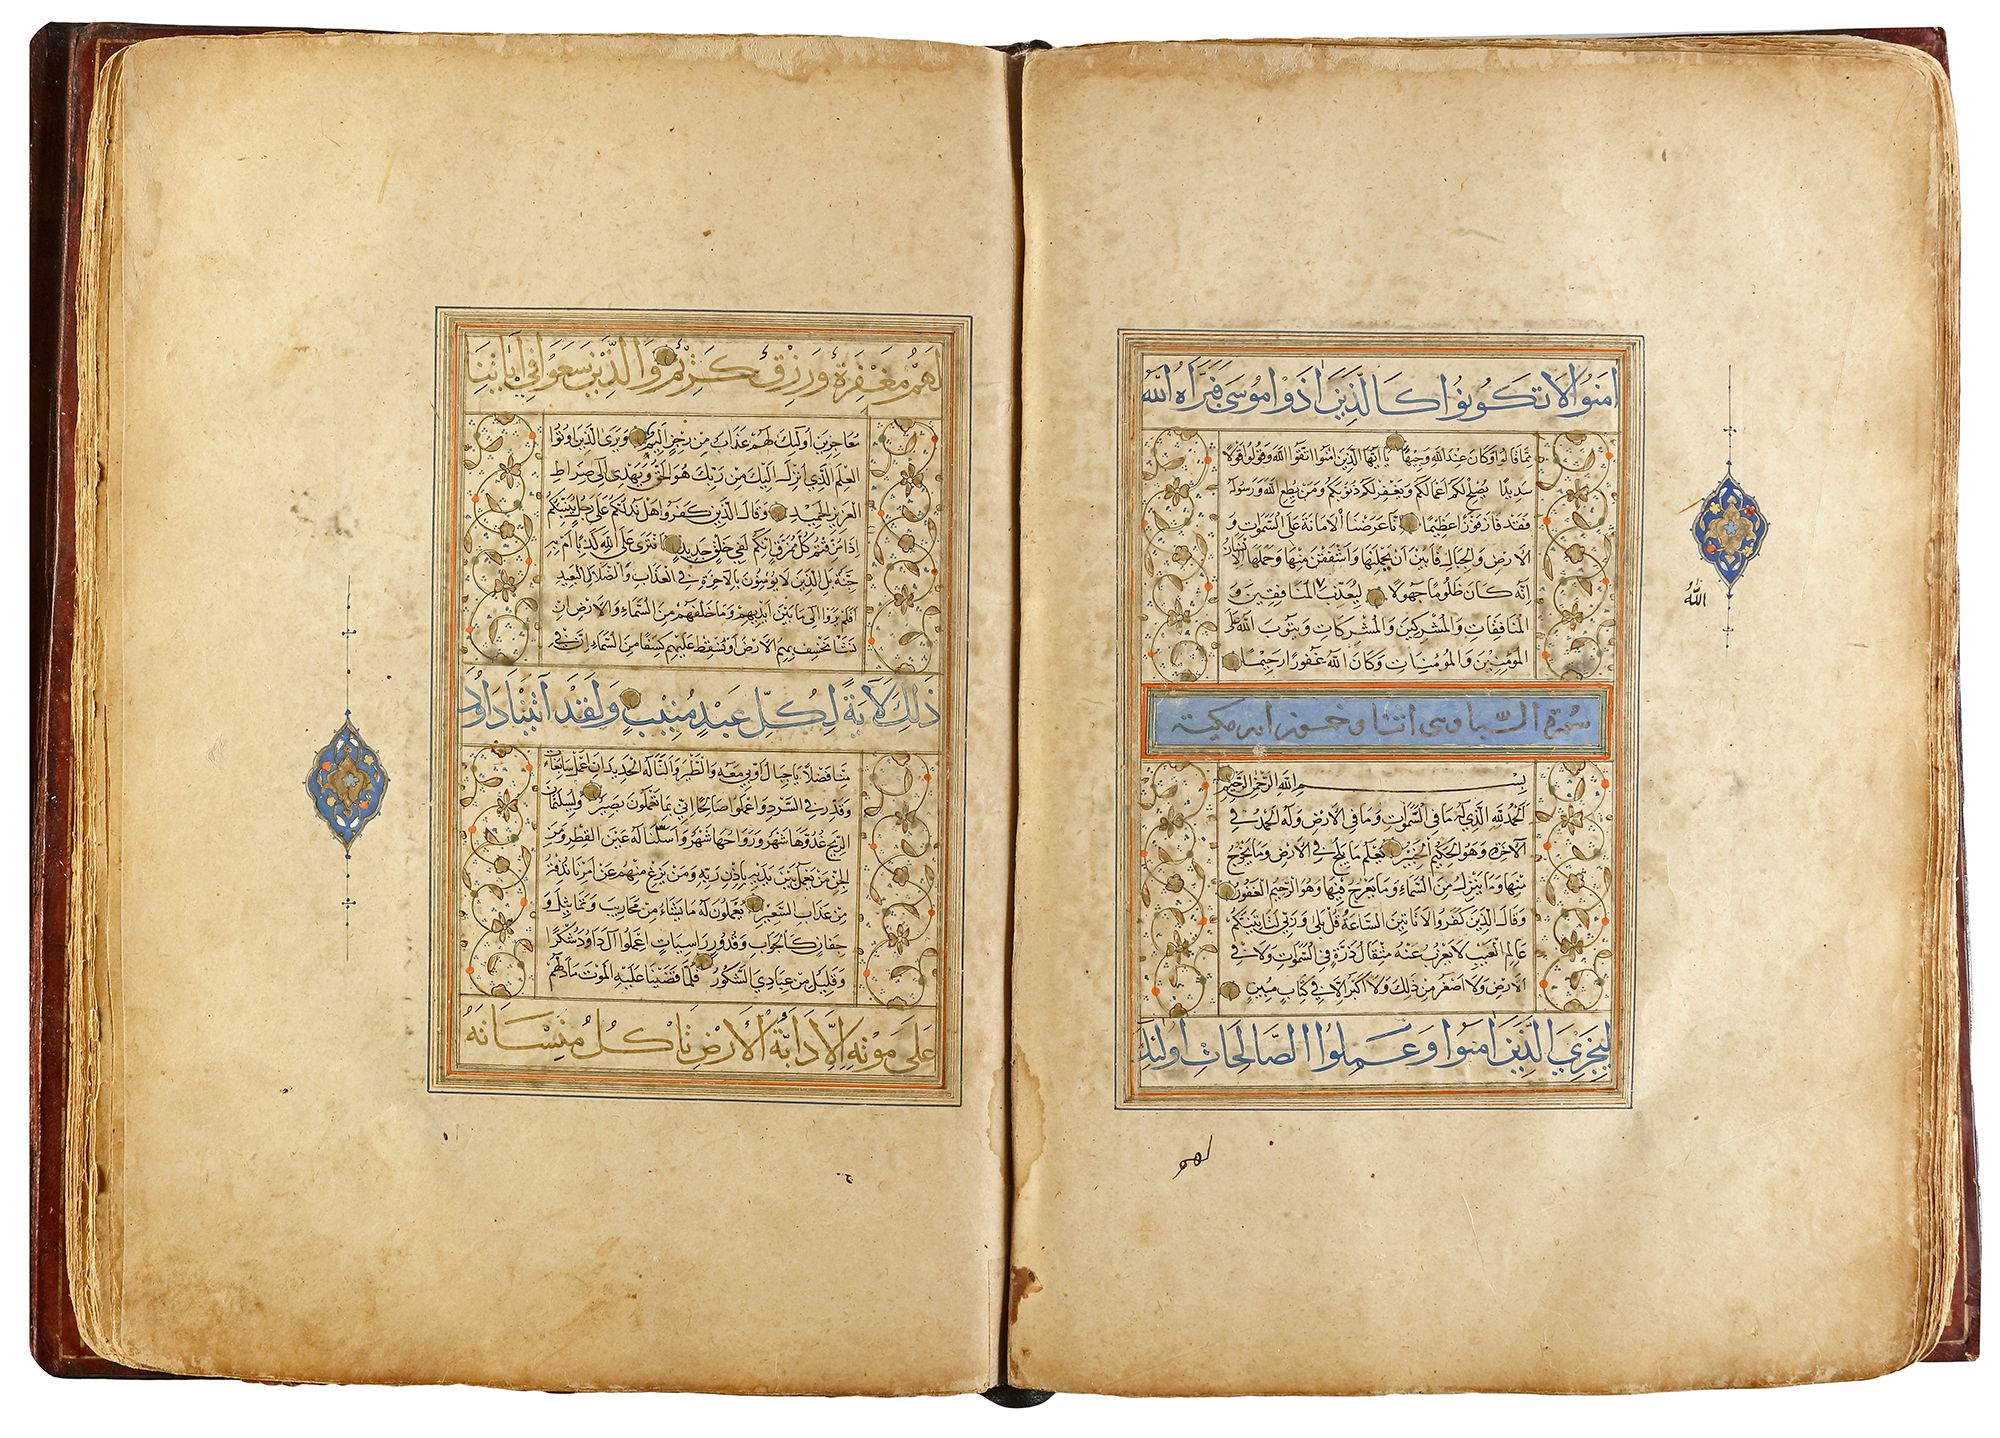 امنوا لا تكونوا كالذين اذوا موسى فبراه الله
مما قالوا وكان عند الله وجيها يا ايها الذين امنوا اتقوا الله وقولوا قولا
سديدا يصلح لكم اعمالكم ويغفر لكم ذنوبكم ومن يطع الله ورسوله
فقد فاز فوزا عظيما انا عرضنا الامانة على السموات و
الارض والجبال فابين ان يحملنها واشفقن منها وحملها الانسان
انه كان ظلوما جهولا ليعذب المنافقين و
المنافقات والمشركين والمشركات ويتوب الله على
المؤمنين والمؤمنات وكان الله غفورا رحيما
سورة السبا وهى اثنا وخمسون ايه مكية
بسم الله الرحمن الرحيم
الحمد لله الذي له ما في السموات وما في الارض وله الحمد في
الاخرة وهو الحكيم الخبير يعلم ما يلج في الارض وما يخرج
منها وما ينزل من السماء وما يعرج فيها وهو الرحيم الغفور
وقال الذين كفروا لا تاتينا الساعة قل بلى وربي لتاتينكم
عالم الغيب لا يعزب عنه مثقال ذرة في السموات ولا في
الارض ولا اصغر من ذلك ولا اكبر الا في كتاب مبين
ليجزي الذين امنوا وعملوا الصالحات اولئك
الله
لهم
لهم مغفرة ورزق كريم والذين سعوا في اياتنا
معاجزين اولئك لهم عذاب من رجز اليم ويرى الذين اوتوا
العلم الذي انزل اليك من ربك هو الحق ويهدي الى صراط
العزيز الحميد وقال الذين كفروا هل ندلكم على رجل ينبئكم
اذا مزقتم كل ممزق انكم لفي خلق جديد افترى على الله كذبا ام به
جنة بل الذين لا يؤمنون بالاخرة في العذاب والضلال البعيد
افلم يروا الى ما بين ايديهم وما خلفهم من السماء والارض ان
نشا نخسف بهم الارض او نسقط عليهم كسفا من السماء ان في
ذلك لاية لكل عبد منيب ولقد اتينا داود
منا فضلا يا جبال اوبي معه والطير والنا له الحديد ان اعمل سابغات
وقدر في السرد واعملوا صالحا اني بما تعملون بصير ولسليمان
الريح غدوها شهر ورواحها شهر واسلنا له عين القطر ومن
الجن من يعمل بين يديه باذن ربه ومن يزغ منهم عن امرنا نذقه
من عذاب السعير يعملون له ما يشاء من محاريب وتماثيل و
جفان كالجواب وقدور راسيات اعملوا آل داود شكرا
وقليل من عبادي الشكور فلما قضينا عليه الموت ما دلهم
على موته الا دابة الارض تاكل منساته